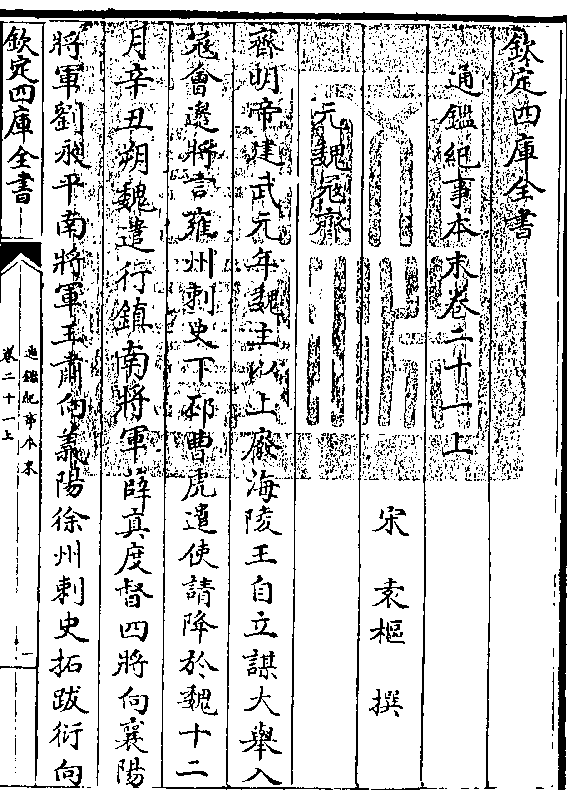 欽定四庫全書
通鑑紀事本末卷二十一上
宋 袁樞 撰
元魏宼齊
齊明帝建武元年魏主以上廢海陵王自立謀大舉入
宼會邊將言雍州刺史下邳曹虎遣使請降於魏十二
月辛丑朔魏遣行鎮南將軍薛真度督四將向襄陽
將軍劉昶平南將軍王肅向義陽徐州刺史拓跋衍向
欽定四庫全書
通鑑紀事本末
卷二十一上
一